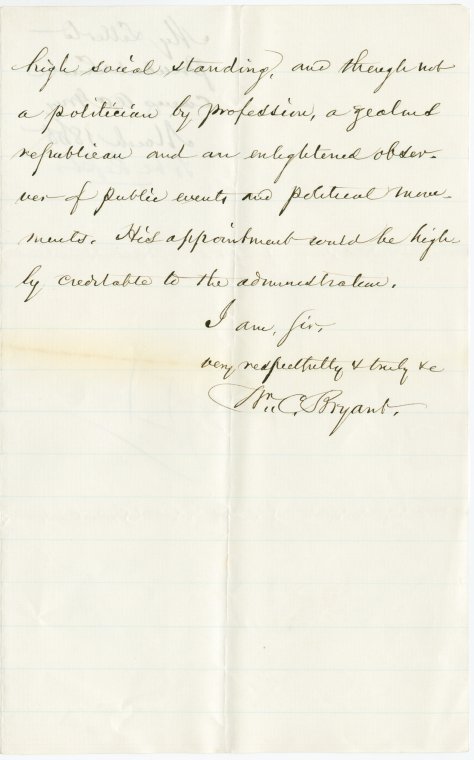 high social standing, and though not
a politician by profession, a zealous
republican and an enlightened obser-
ver of public events and political move-
ments. His appointment would be high-
ly creditable to the administration.
I am, Sir,
very respectfully & truly &c
Wm. C. Bryant.